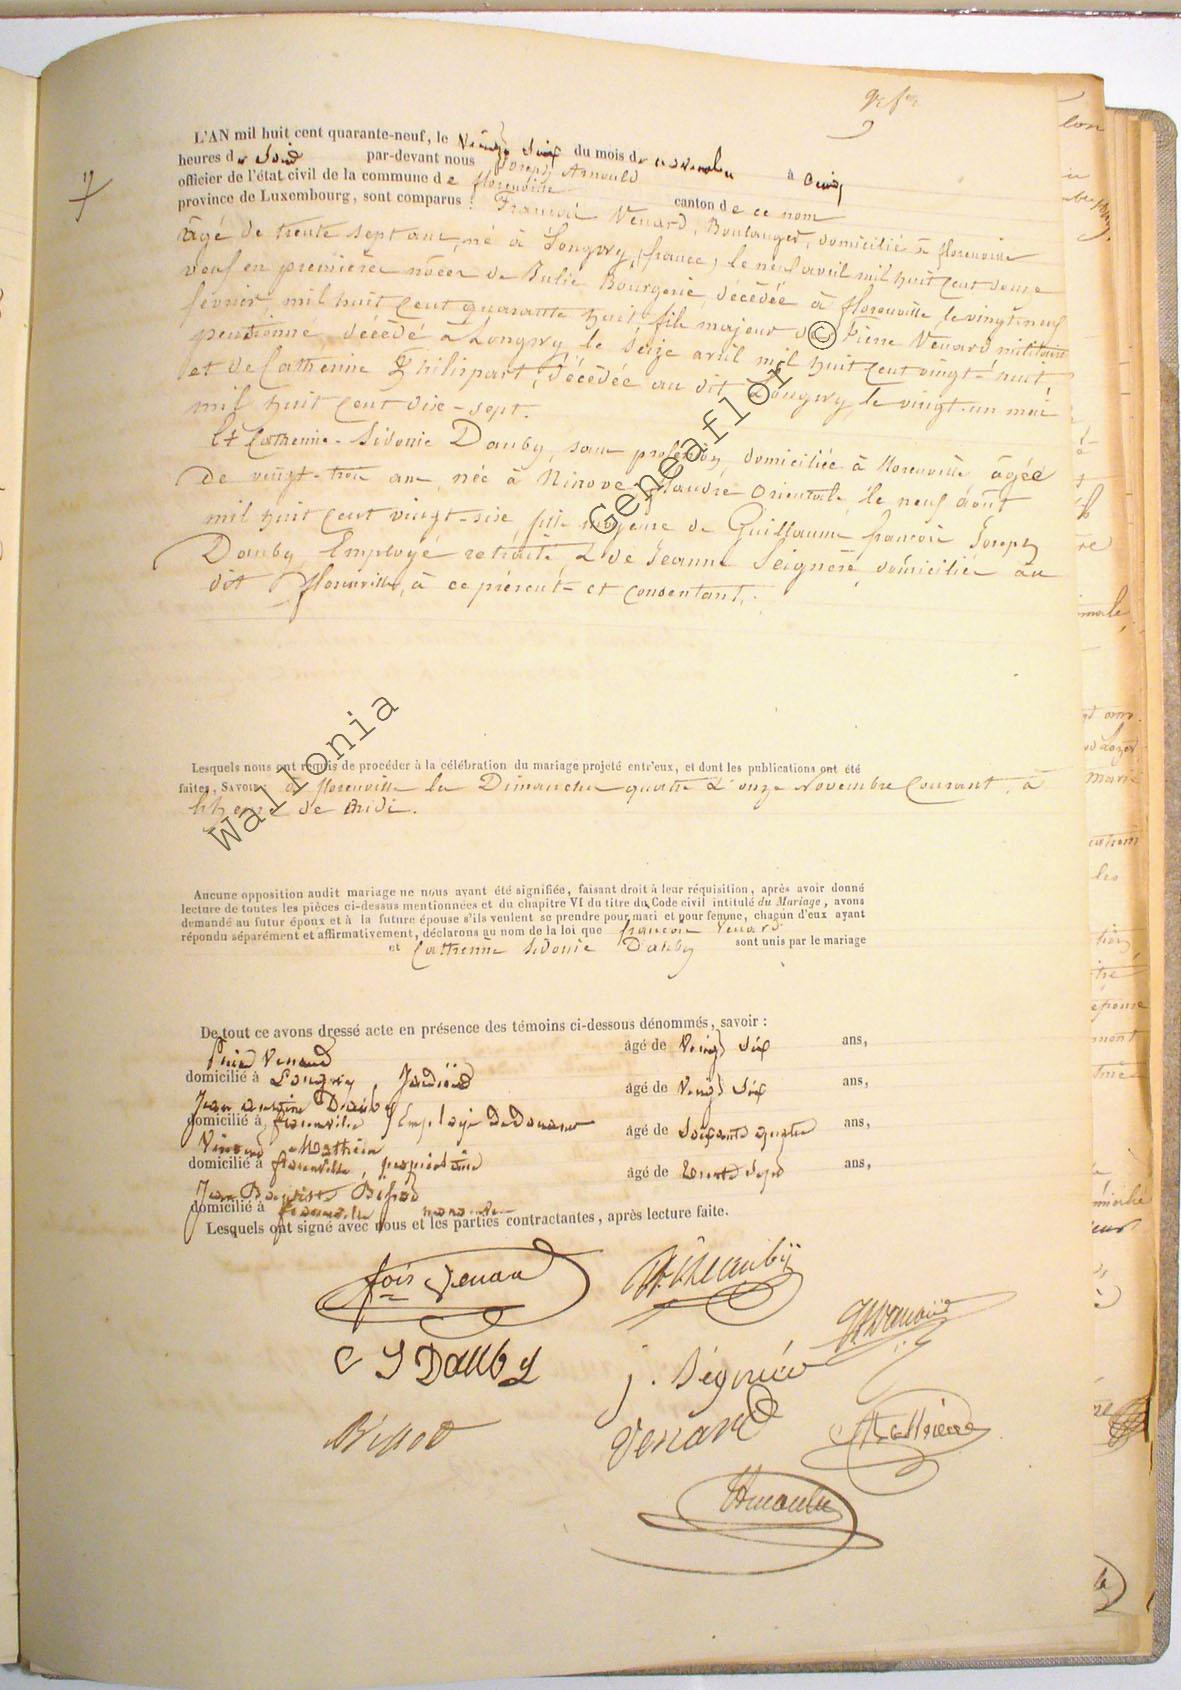 17
L'AN mil huit cent quarante-neuf, le Vingt six du mois de novembre à cinq
heures du soir par-devant nous Joseph Arnould
officier de l'état civil de la commune de florenville canton de ce nom
province de Luxembourg, sont comparus : François Venard, Boulanger, domicilié à florenville
âgé de trente sept ans, né à Longwy, (france) le neuf avril mil huit cent douze
veuf en premières nôces de Julie Bourgeois, décédée à florenville le vingt neuf
février mil huit cent quarante huit fils majeur de Pierre Venard militaire
pensionné, décédé à Longwy le seize avril mil huit cent vingt-huit,
et de Catherine Philippart, décédée au dit Longwy, le vingt-un mai
mil huit cent dix-sept.
Et Catherine-Sidonie Dauby, sans profession, domiciliée à florenville, âgée
de vingt-trois ans, née à Ninove flandre orientale, le neuf août
mil huit cent vingt-six, fille majeure de Guillaume françois Joseph
Dauby Employé retraité & de Jeanne Seignere, domiciliés au
dit florenville, à ce présent et consentant.
Lesquels nous ont requis de procéder à la célébration du mariage projeté entr'eux, et dont les publications ont été
faites, SAVOIR : à florenville les Dimanches quatre & onze Novembre Courant, à
l'heure de Midi.
Aucune opposition audit mariage ne nous ayant été signifiée, faisant droit à leur réquisition, après avoir donné
lecture de toutes les pièces ci-dessus mentionnées et du chapitre VI du titre du Code civil intitulé du Mariage, avons
demandé au futur époux et à la future épouse s'ils veulent se prendre pour mari et pour femme, chacun d'eux ayant
répondu séparément et affirmativement, déclarons au nom de la loi que françois Venard
et Catherine Sidonie Dauby sont unis par le mariage
De tout ce avons dressé acte en présence des témoins ci-dessous dénommés, savoir :
Venard âgé de Vingt six ans,
domicilié à Longwy,
Jean Dauby âgé de Vingt six ans,
domicilié à florenville Employé de Douane
Mathieu âgé de Soixante quatre ans,
domicilié à florenville, propriétaire
Jean Baptiste âgé de trente sept ans,
domicilié à florenville
Lesquels ont signé avec nous et les parties contractantes, après lecture faite.
fois Venard
C S Dauby
Venard
Mathieu
Wallonia Geneaflor ©